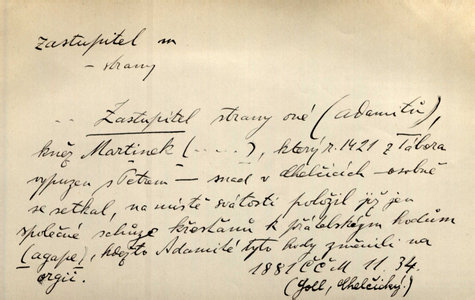 zastupitel m
– strany
... Zastupitel strany oné (adamitů),
kněz Martinek (.....), který r. 1421 z Tábora
vypuzen s Petrem – snad v Chelčicích osobně
se setkal, na místě svátosti položil již jen
společné schůze křesťanů k přátelským hodům
(agape), kdežto Adamité tyto hody změnili na
orgií.
1881 ČČM 11. 34.
(Goll, Chelčický)